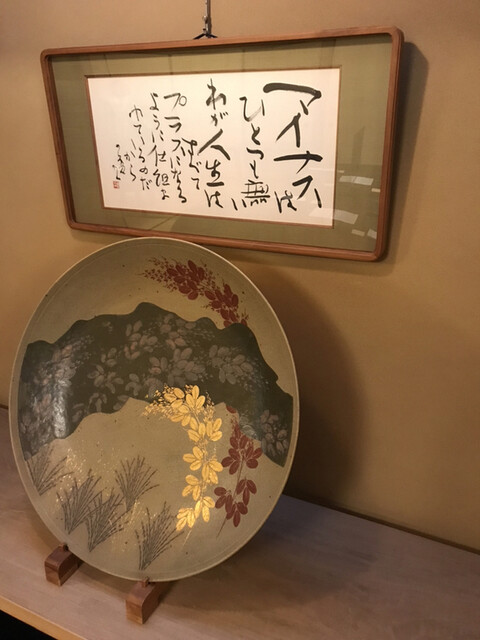 マイナスは
ひとつも無い
わが人生は
すべて
プラスになる
ように仕組ま
れているのだ
から